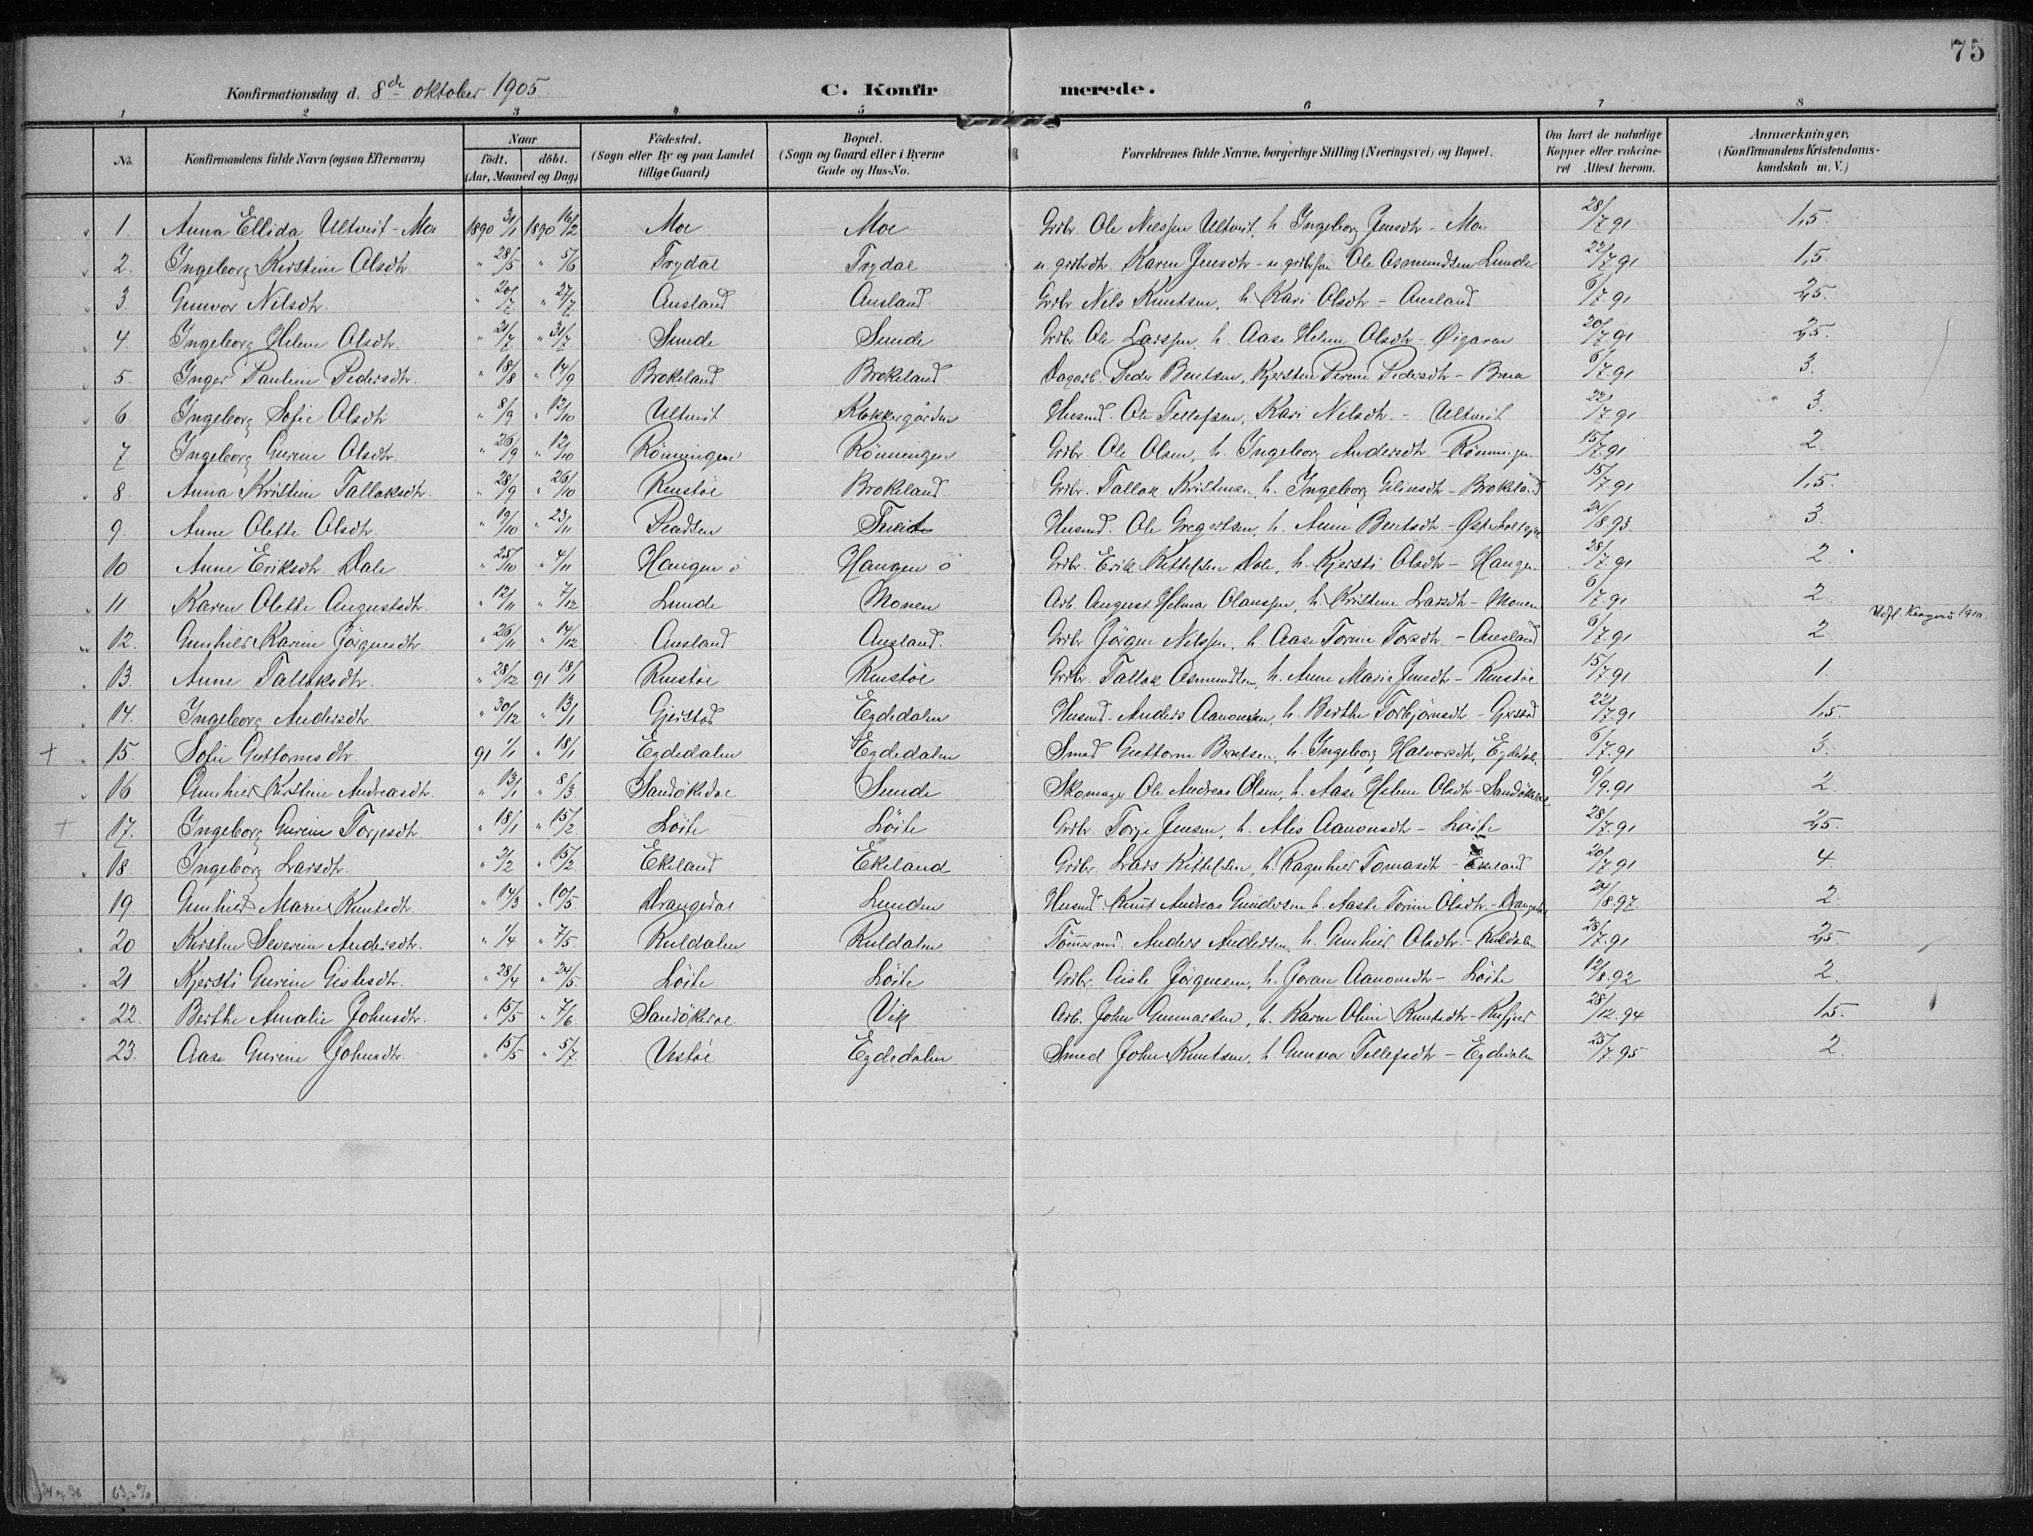 75
Konfirmationsdag d. 8de oktober 1905. C. Konfirmerede.
1 2 3 4 5 6 7 8
No. Konfirmandens fulde Navn (ogsaa Efternavn) Naar födt. döbt. (Aar, Maaned og Dag) Födested. (Sogn eller By og paa Landet tillige Gaard) Bopæl. (Sogn og Gaard eller i Byerne Gade og Hus-No. Forældrenes fulde Navne, borgerlige Stilling (Næringsvei) og Bopæl. Om havt de naturlige Kopper eller vakcineret Attest herom. Anmærkninger. (Konfirmandens Kristendomskundskab m. V.)
1. Anna Ellida Ultveit-Moe 1890 31/1 1890 16/2 Moe Moe Grdbr. Ole Nilssen Ultveit, h. Ingeborg Jensdtr - Moe 28/7.91 1,5.
2. Ingeborg Kirstine Olsdtr " 28/5 " 5/6 Trydal Trydal Karen Jensdtr - Ole Osmundsen Lunde 22/7.91 1,5.
3. Gunvor Nilsdtr. " 20/7 " 27/7 Ausland Ausland. Grdbr. Nils Knutsen, h. Kari Olsdtr - Ausland 6/7.91 2,5.
4. Ingeborg Helene Olsdtr. " 21/7 " 31/7 Sunde Sunde Grdbr. Ole Larssen, h. Aase Helene Olsdtr - Øigaren 20/7.91 2,5.
5. Inger Pauline Pedersdtr. " 18/8 " 14/9 Brokeland Brokeland Dagarb. Peder Bentsen, Kjersten Perine Pedersdtr - 6/7.91 3.
6 Ingeborg Sofie Olsdtr. " 8/9 " 12/10 Ultveit Klokkergården Husmd. Ole Tellefsen, Kari Nilsdtr - Ultveit 22/7.91 3.
7 Ingeborg Gurine Olsdtr. " 26/9 " 12/10 Rönningen Rönningen Grdbr. Ole Olsen, h. Ingeborg Andersdtr. - Rönningen 15/7.91 2.
8. Anna Kristine Tallaksdtr. " 28/9 " 26/10 Brokeland Grdbr. Tallak Kristensen, h. Ingeborg - Brokeland 15/7.91 1,5.
9. Anne Olette Olsdtr. " 19/10 " 23/11 Husmd. Ole Gregertsen, h. Anne Bentsdtr - 21/8.93. 3.
10 Anne Eriksdtr. Dale " 25/10 " 4/11 Haugen ö Haugen ö Grdbr. Erik Kittelsen Dale, h. Kjersti Olsdtr - Haugen 28/7.91 2.
11 Karen Olette Augustsdtr. " 12/11 " 7/12 Lunde Monen Arb. August Helmar Olaussen, h. Kristine Larsdtr - Monen 6/7.91 2.
12. Gunhild Karine Jörgensdtr " 26/11 " 14/12 Ausland Ausland. Grdbr Jörgen Nilssen, h. Aase Torine Torsdtr. - Ausland 6/7.91 2. Udfl. Kragerö 1911.
13. Anne Tallaksdtr. " 28/12 91 18/1 Grdbr. Tallak Osmundsen, h. Anne Marie Jensdtr - 15/7.91 1.
14. Ingeborg Andersdtr. " 30/12 " 13/1 Gjerstad Egdedalen Husmd. Anders Aanonsen, h. Berthe Torbjörnsdtr - Gjerstad 22/7.91 1,5.
+ 15. Sofie Guttormsdtr. 91 1/1 " 18/1 Egdedalen Egdedalen Smed Guttorm Berntsen, h. Ingeborg Halvorsdtr, Egdedalen 6/7.91 3.
16 Gunhild Kirstine Andreasdtr. " 13/1 " 8/3 Sandökedal Sunde Skomager Ole Andreas Olsen, h. Aase Helene Olsdtr - Sandökedal 9/9.91 2.
+ 17. Ingeborg Gurine Torjesdtr. " 18/1 " 15/2 Löite Löite Grdbr. Torje Jensen, h. Alis Aanonsdtr - Löite 28/7.91 2,5.
18. Ingeborg Larsdtr. " 2/2 " 15/2 Ekeland Ekeland Grdbr Lars Kittelsen, h. Ragnhild Tomasdtr - Ekeland 20/7.91 4.
19. Gunhild Marie Knutsdtr " 14/3 " 10/5 Drangedal Lunden Husmd. Knut Andreas Gundersen, h. Aaste Torine Olsdtr. - Drangedal 24/8.97 2.
20 Kirsten Severine Andersdtr. " 1/4 " 7/5. Ruldalen Ruldalen Tömmermd. Anders Andersen, h. Gunhild Olsdtr. - Ruldalen 28/7.91 2,5.
21 Kjersti Gurine Gislesdtr. " 28/4 " 24/5. Löite Löite Grdbr. Gisle Jörgensen, h. Joran Aanonsdtr - Löite 12/8.92 2.
22. Berthe Amalie Johnsdtr. " 15/5 " 7/6. Sandökedal Vik Arb. John Gunnarsen, h. Karen Oline Knutsdtr - 28/12.94 1,5.
23. Aase Gurine Johnsdtr. " 15/5 " 5/7 Vestöl Egdedalen Smed John Knutsen, h. Gunvor Tellefsdtr - Egdedalen 25/7.95 2.